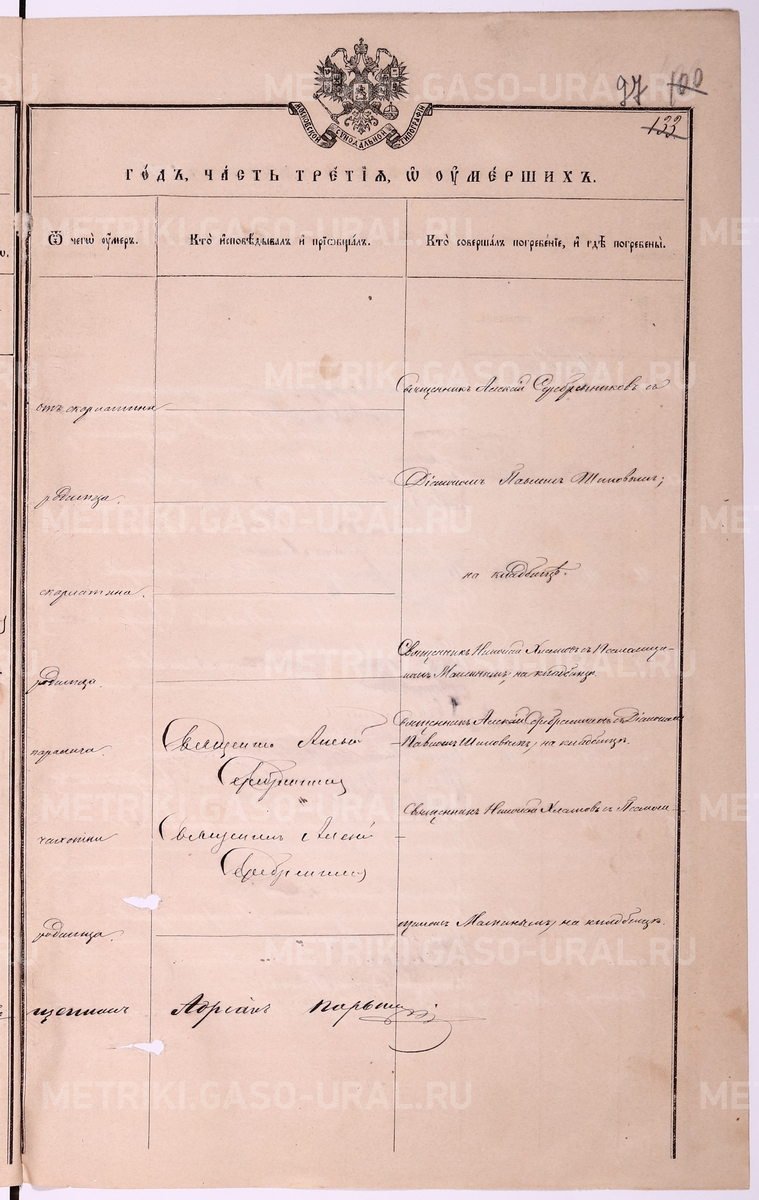 97 100
122
МОСКОВСКОЙ СѴНОДАЛЬНОЙ ТИПОГРАФІИ
го́дъ, ча́сть тре́тїѧ, ѡ҆ ᲂу҆ме́ршихъ.
Ѿ чегѡ̀ ᲂу҆́меръ.
Кто̀ и҆сповѣ́дывалъ и҆ прїѡбща́лъ.
Кто̀ соверша́лъ погребе́нїе, и҆ гдѣ̀ погребены̀.
отъ скорлатины
Священникъ Алексій Серебренниковъ съ
родимца
Діакономъ Павломъ Шиловымъ;
скорлатина
на кладбищѣ.
родимца
Священникъ Хламовъ съ Псаломщи-
комъ Малининымъ, на кладбище
паралича
Священникъ Алексій
Серебренниковъ
Священникъ Алексій Серебренниковъ съ Діакономъ
Павломъ Шиловымъ, на кладбищѣ.
чахотки
Священникъ Алексій
Серебренниковъ
Священникъ Хламовъ съ Псалом-
родимца
щикомъ Малининымъ, на кладбищѣ.
щенникъ Адріанъ
METRIKI.GASO-URAL.RU